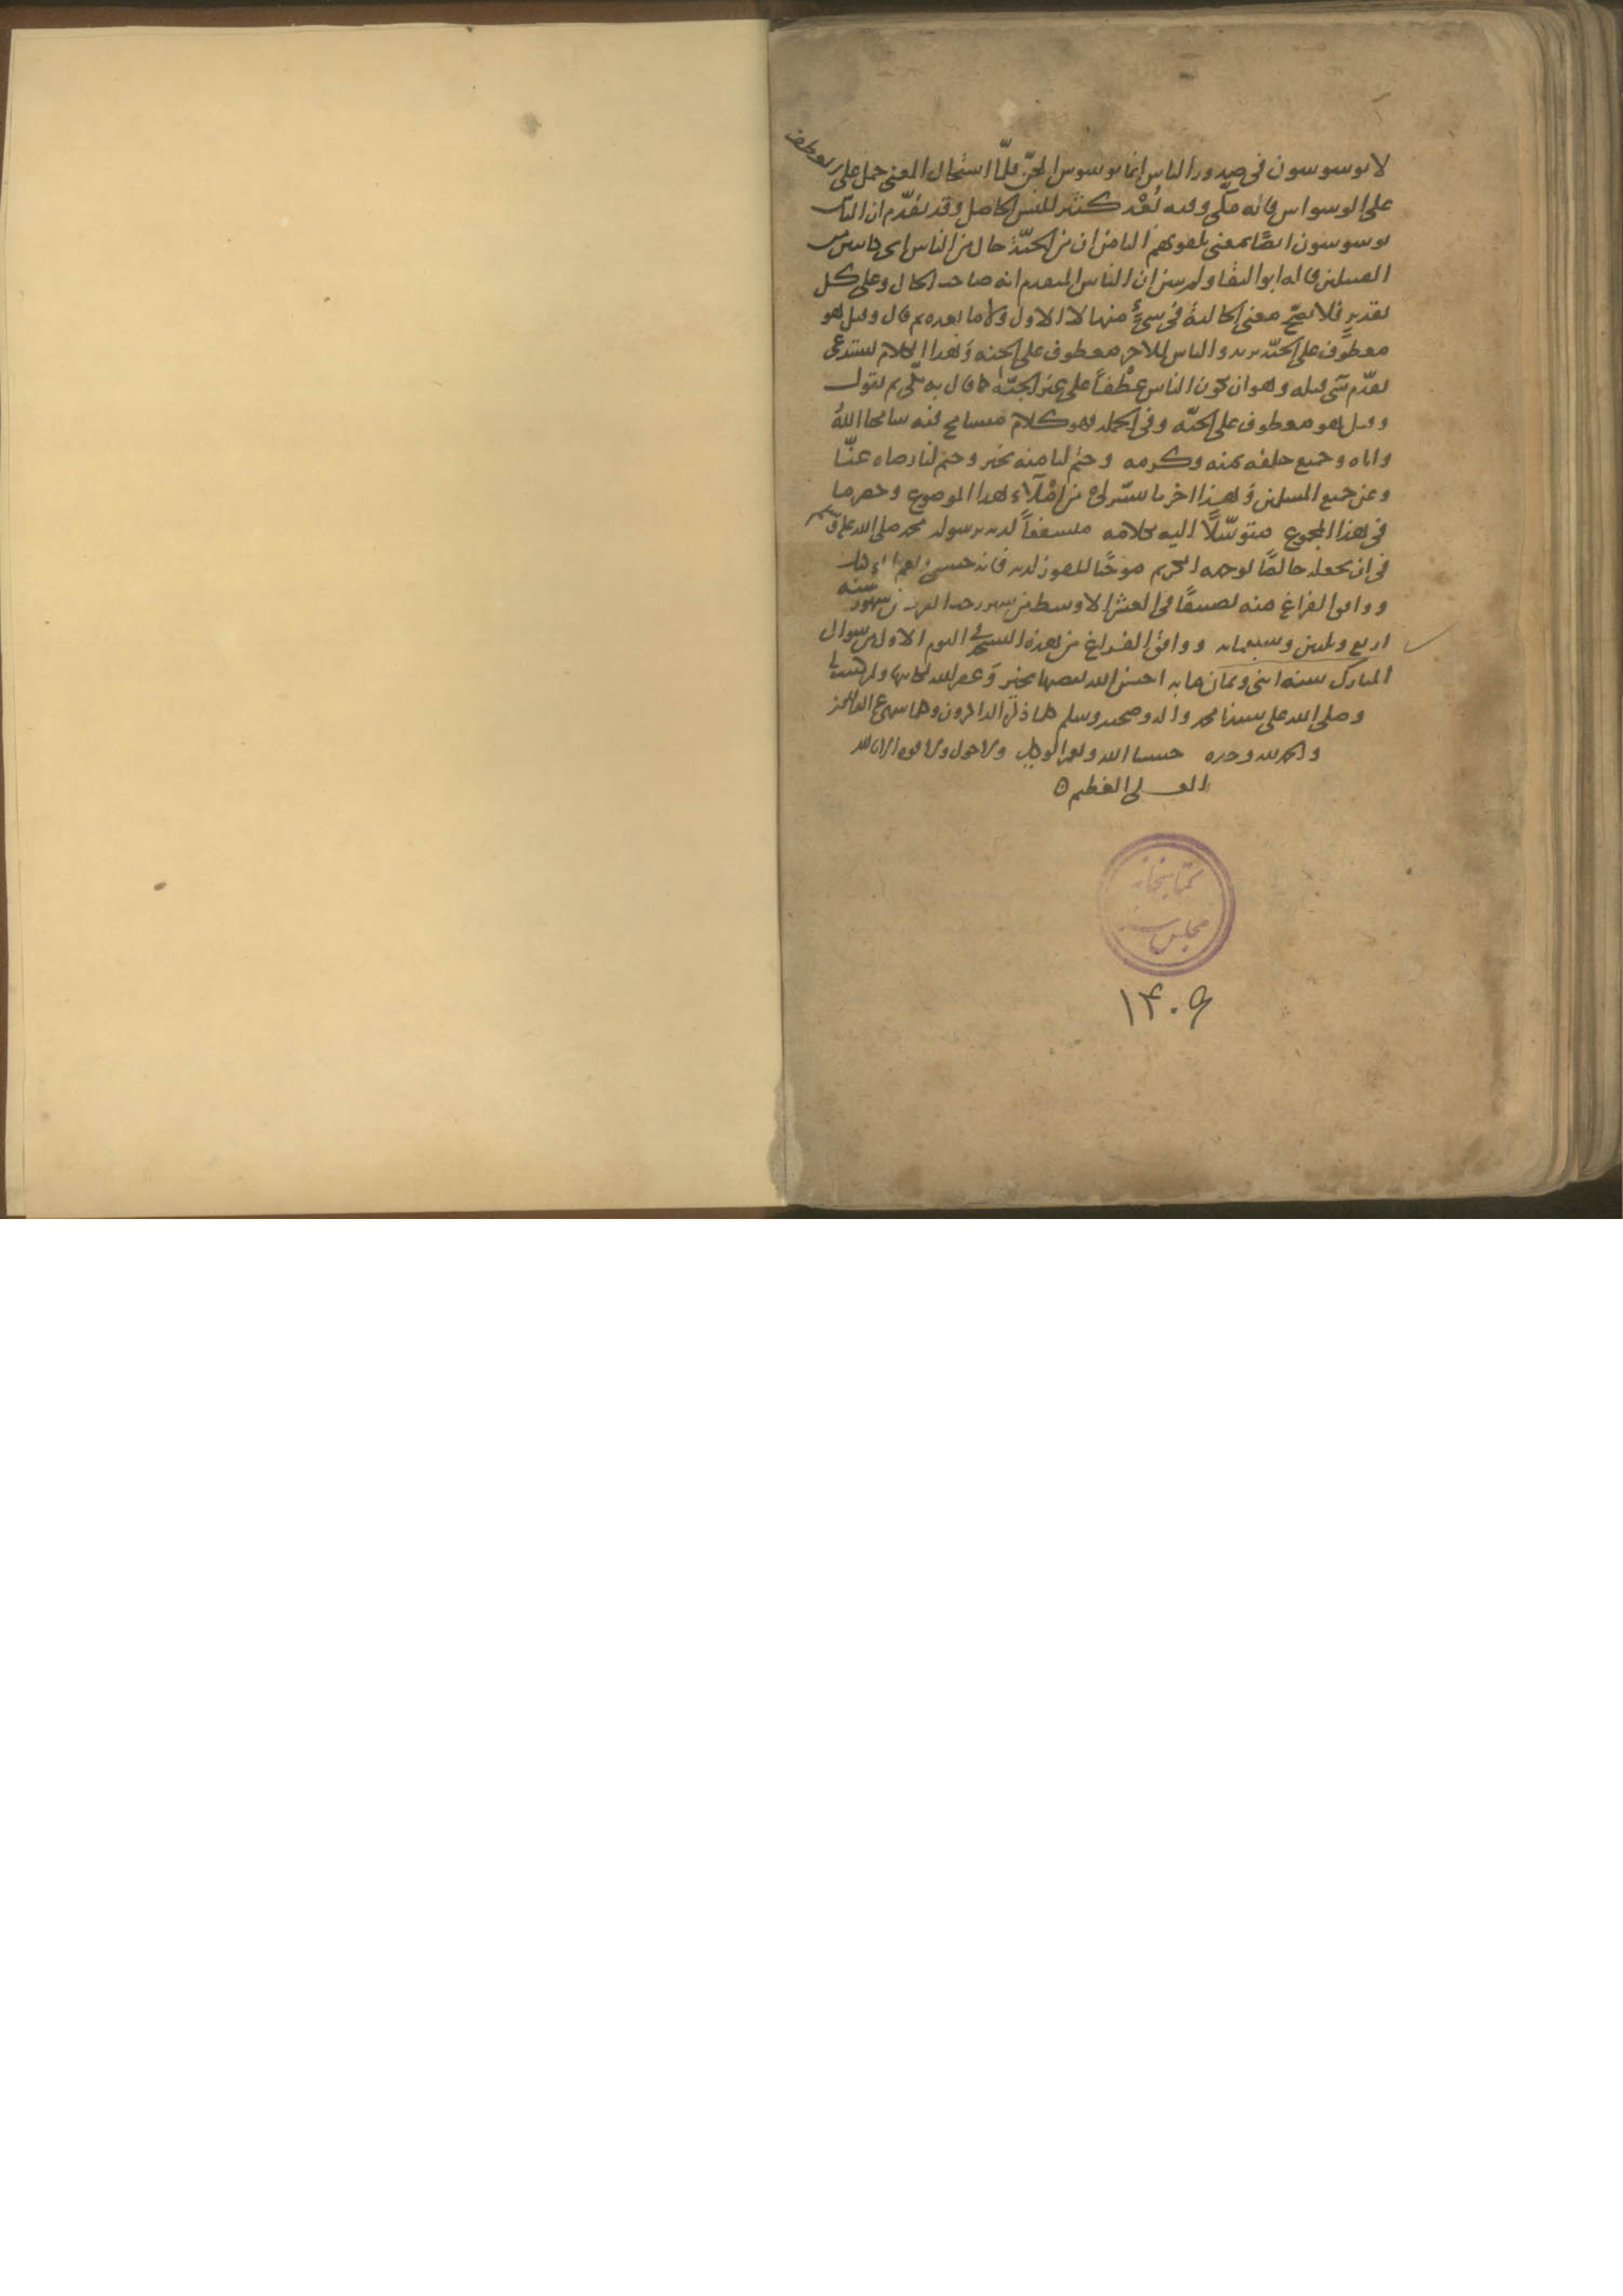 لا يوسوسون في صدور الناس انما يوسوس الجنّ فلمّا استحال المعنى حمل على العطف
على الوسواس قاله مكّي وفيه بُعْد كثير للبس الحاصل وقد تقدّم ان الناس
يوسوسون ايضًا بمعنى يليق بهم الثامن ان من الجنّة حال من الناس اى كاينين من
القبيلين قاله ابو البقا ولم يبين ان الناس المتقدم انه صاحب الحال وعلى كل
تقدير فلا يصحّ معنى الحالية في شئ منها لا الاول ولا ما بعده ثم قال وقيل هو
معطوف على الجنّة يريد والناس الاخير معطوف على الجنة وَهذا الكلام يستدعى
تقدّم شى قبله وهو ان يكون الناس عطفاً على غير الجنّة كما قال به مكّي ثم يقول
وقيل هو معطوف على الجنّة وفي الجملة فهو كلام متسامح فيه سامحنا اللهُ
واياه وجميع خلقه بمنه وكرمه وختم لنا منه بخير وختم لنا رضاه عنّا
وعن جميع المسلمين وَهذا اخر ما يسّر لي من املآء هذا الموضوع وحصر ما
في هذا المجموع متوسّلًا اليه بكلامه مستشفعاً لديه برسوله محمد صلى الله عليه وسلم
في ان يجعله خالصًا لوجهه الكريم موجبًا للفوز لديه فانه حسبي ونعم الوكيل
ووافق الفراغ منه تصنيفًا في العشر الاوسط من شهر رجب الفرد من شهور سنه
اربع وثلثين وسبعمايه ووافق الفراغ من هذه النسخة في اليوم الاول من شوال
المبارك سنه اثنى وثمان مايه احسن الله تقضيها بخير وَغفر الله لكاتبها
وصلى الله على سيدنا محمد واله وصحبه وسلم كلما ذكره الذاكرون وكلما سهى عنه الغافلون
والحمد لله وحده حسبنا الله ونعم الوكيل ولا حول ولا قوه الا بالله
العلى العظيم ٥
كتابخانه
مجلس
۱۴۰۹